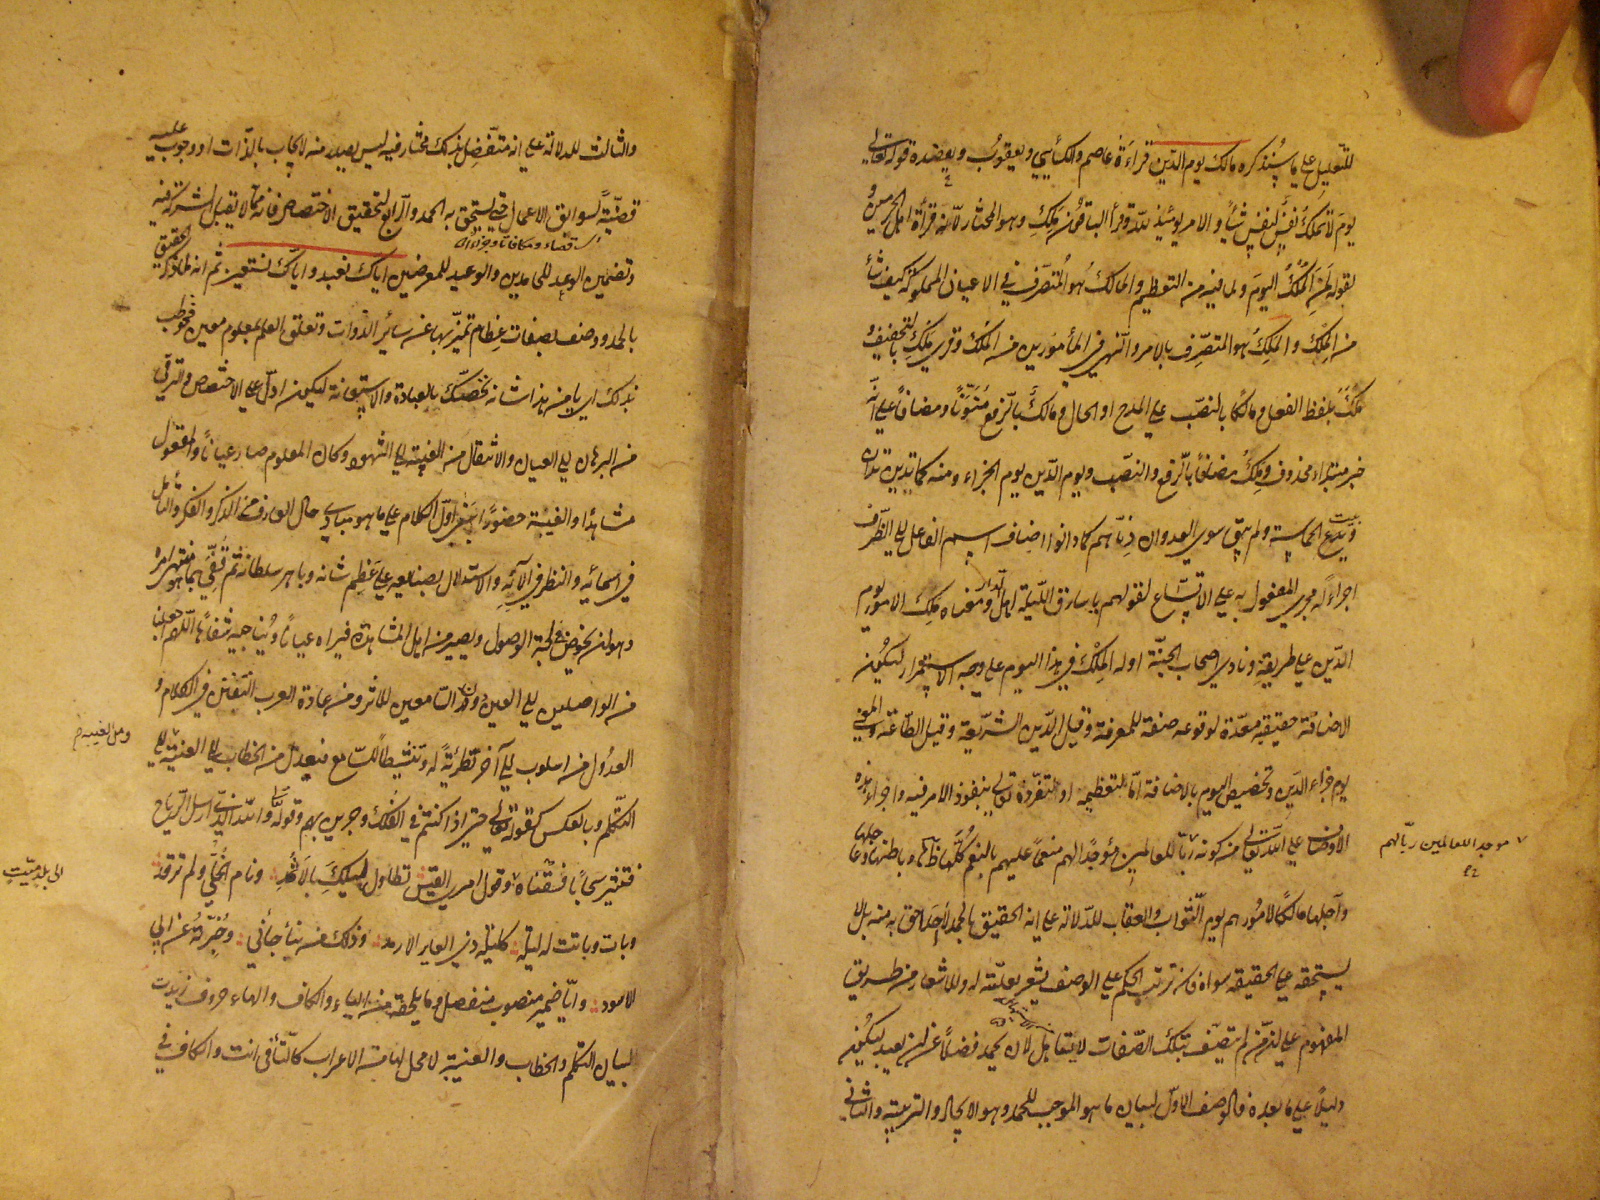 للتعليل على ما سنذكره مالك يوم الدين قراءة عاصم والكسائي ويعقوب ويعضده قوله تعالى
يوم لا تملك نفس لنفس شيأ والامر يومئذ لله وقرأ الباقون ملك وهو المختار لانه قرأة اهل الحرمين و
لقوله لمن الملك اليوم ولما فيه من التعظيم والمالك هو المتصرف في الاعيان المملوكة كيف شأ
من الملك والملك هو المتصرف بالامر والنهي في المأمورين من الملك وقرى ملك بالتخفيف و
ملك بلفظ الفعل ومالكا بالنصب على المدح او الحال ومالك بالرفع منونا ومضافا على انه
خبر مبتداء محذوف وملك مضافا بالرفع والنصب ويوم الدين يوم الجزاء ومنه كما تدين تدان
وبيت الحماسة ولم يبق سوى العدوان دناهم كما دانوا اضاف اسم الفاعل الى الظرف
اجراء له مجرى المفعول به على الاتساع لقولهم يا سارق الليلة اهل الدار ومعناه ملك الامور يوم
الدين على طريقة ونادى اصحاب الجنة او له الملك في هذا اليوم على وجه الاستمرار لتكون
الاضافة حقيقية معدة لوقوعه صفة للمعرفة وقيل الدين الشريعة وقيل الطاعة والمعنى
يوم جزاء الدين وتخصيص اليوم بالاضافة اما لتعظيمه او لتفرده تعالى بنفوذ الامر فيه واجراء هذه
الاوصاف على الله تعالى من كونه ربا للعالمين موجدا لهم منعما عليهم بالنعم كلها ظاهرها وباطنها عاجلها
وآجلها مالكا لامورهم يوم الثواب والعقاب للدلالة على انه الحقيق بالحمد لا احد احق به منه بل لا
يستحقه على الحقيقة سواه فان ترتب الحكم على الوصف يشعر بعليته له وللاشعار من طريق
المفهوم على ان من لم يتصف بتلك الصفات لا يستاهل لان يحمد فضلا عن ان يعبد ليكون
دليلا على ما بعده فالوصف الاول لبيان ما هو الموجب للحمد وهو الايجاد والتربية والثاني
موجد اللعالمين ربا لهم
والثالث للدلالة على انه متفضل بذلك مختار فيه ليس يصدر منه لايجاب بالذات او وجوب عليه
قضية لسوابق الاعمال حتى يستحق به الحمد والرابع لتحقيق الاختصاص فانه مما لا يقبل الشركة فيه
وتضمين الوعد للحامدين والوعيد للمعرضين اياك نعبد واياك نستعين ثم انه لما ذكر الحقيق
بالحمد ووصف بصفات عظام تميز بها عن سائر الذوات وتعلق العلم بمعلوم معين فخوطب
بذلك اي يا من هذا شانه نخصك بالعبادة والاستعانة ليكون ادل على الاختصاص والترقي
من البرهان الى العيان والانتقال من الغيبة الى الشهود وكان المعلوم صار عيانا والمعقول
مشاهدا والغيبة حضورا بنى اول الكلام على ما هو مبادي حال العارف من الذكر والفكر والتأمل
في اسمائه والنظر في آلائه والاستدلال بصنايعه على عظيم شانه وباهر سلطانه ثم قفى بما هو منتهى امره
وهو ان يخوض لجة الوصول ويصير من اهل المشاهدة فيراه عيانا ويناجيه شفاها اللهم اجعلنا
من الواصلين الى العين دون السامعين للاثر ومن عادة العرب التفنن في الكلام و
العدول من اسلوب الى آخر تطرية له وتنشيطا للسامع فيعدل من الخطاب الى الغيبة الى
التكلم وبالعكس كقوله تعالى حتى اذا كنتم في الفلك وجرين بهم وقوله والله الذي ارسل الرياح
فتثير سحابا فسقناه وقول امرى القيس تطاول ليلك بالاثمد ونام الخلي ولم ترقد
وبات وباتت له ليلة كليلة ذي العاير الارمد وذلك من نبأ جأني وخبرته عن ابي
الاسود وايا ضمير منصوب منفصل وما يلحقه من الياء والكاف والهاء حروف زيدت
لبيان التكلم والخطاب والغيبة لا محل لها من الاعراب كالتأ في انت والكاف في
ومن الغيبة م
الى بلد ميت